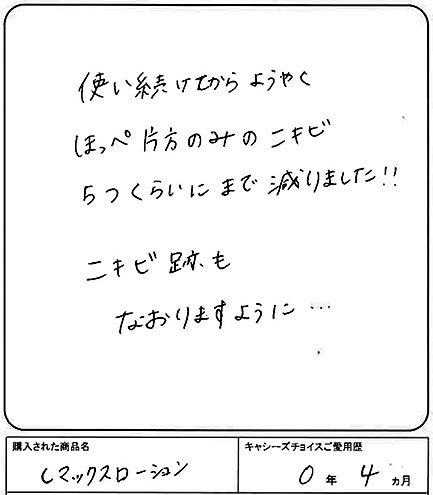 使い続けてから ようやく
ほっぺ 片方のみの ニキビ
5つくらいにまで 減りました!!
ニキビ跡も
なおりますように…
購入された商品名
キャシーズチョイスご愛用歴
Cマックスローション
0年 4ヵ月